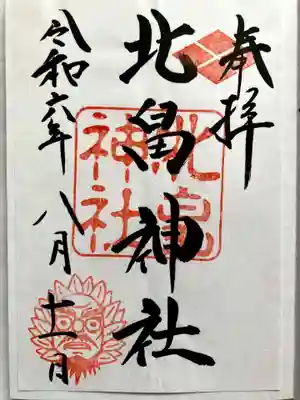 奉拝
北畠神社
北畠神社
令和六年八月十一日